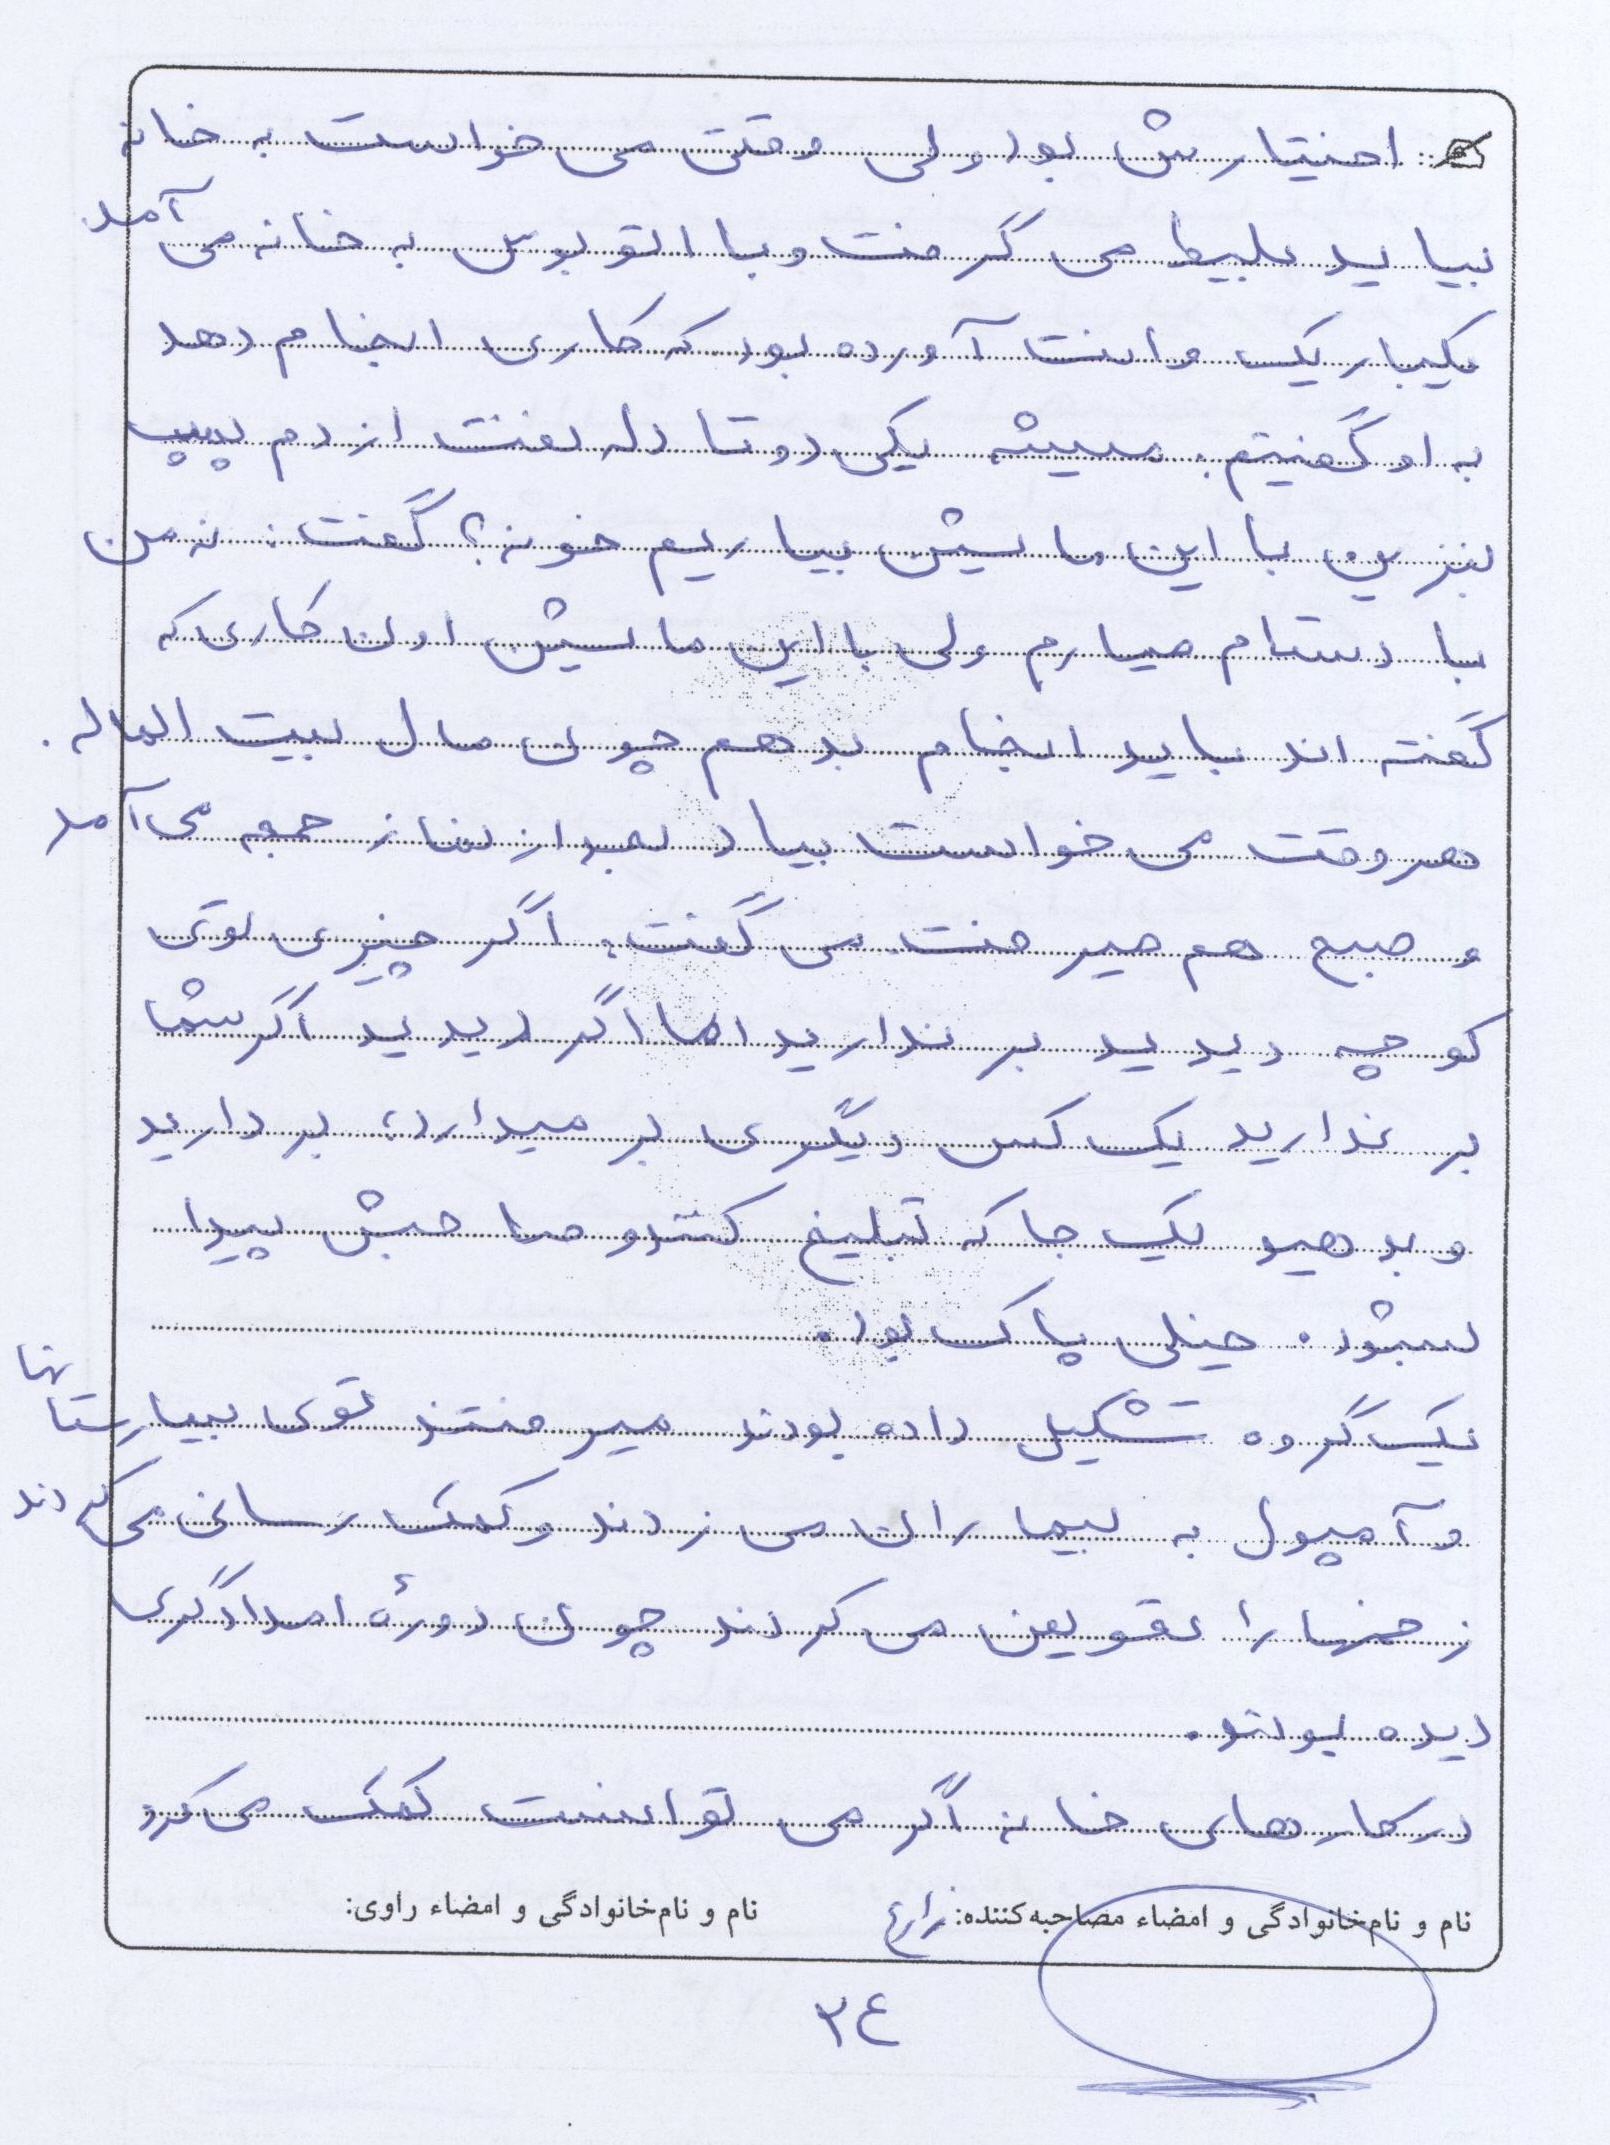 اختیارش بود ولی وقتی می خواست به خانه
بیاید بلیط می گرفت و با اتوبوس به خانه می آمد
یکبار یک وانت آورده بود که کاری انجام دهد
به او گفتیم: میشه یکی دو تا دله نفت از دم پمپ
بنزین با این ماشین بیاریم خونه؟ گفت: نه من
با دستام میارم ولی با این ماشین اون کاری که
گفته اند باید انجام بدهم چون مال بیت الماله.
هر وقت می خواست بیاد بعد از نماز جمعه می آمد
و صبح هم میرفت. می گفت: اگر چیزی توی
کوچه دیدید بر ندارید اما اگر دیدید اگر شما
بر ندارید یک کس دیگری بر میدارد، بر دارید
و بدهید یک جا که تبلیغ کنند و صاحبش پیدا
بشود. خیلی پاک بود.
یک گروه تشکیل داده بودند میرفتند توی بیمارستانها
و آمپول به بیماران می زدند و کمک رسانی می کردند
زخمها را تعویض می کردند چون دورهٔ امدادگری
دیده بودند.
در کارهای خانه اگر می توانست کمک می کرد
نام و نام‌خانوادگی و امضاء مصاحبه‌کننده: زارع
نام و نام‌خانوادگی و امضاء راوی:
۳۴